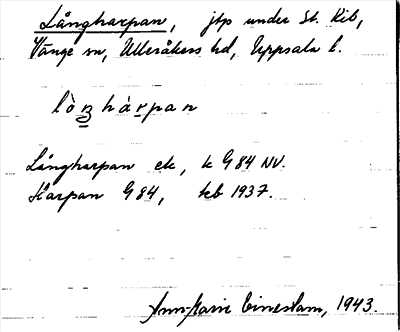 Långharpan, jtp under St. Kil,
Vänge sn, Ulleråkers hd, Uppsala l.
lòŋhàrpan
Långharpan ek, k G 84 NV.
Harpan G 84, kb 1937.
Ann-Marie, 1943.